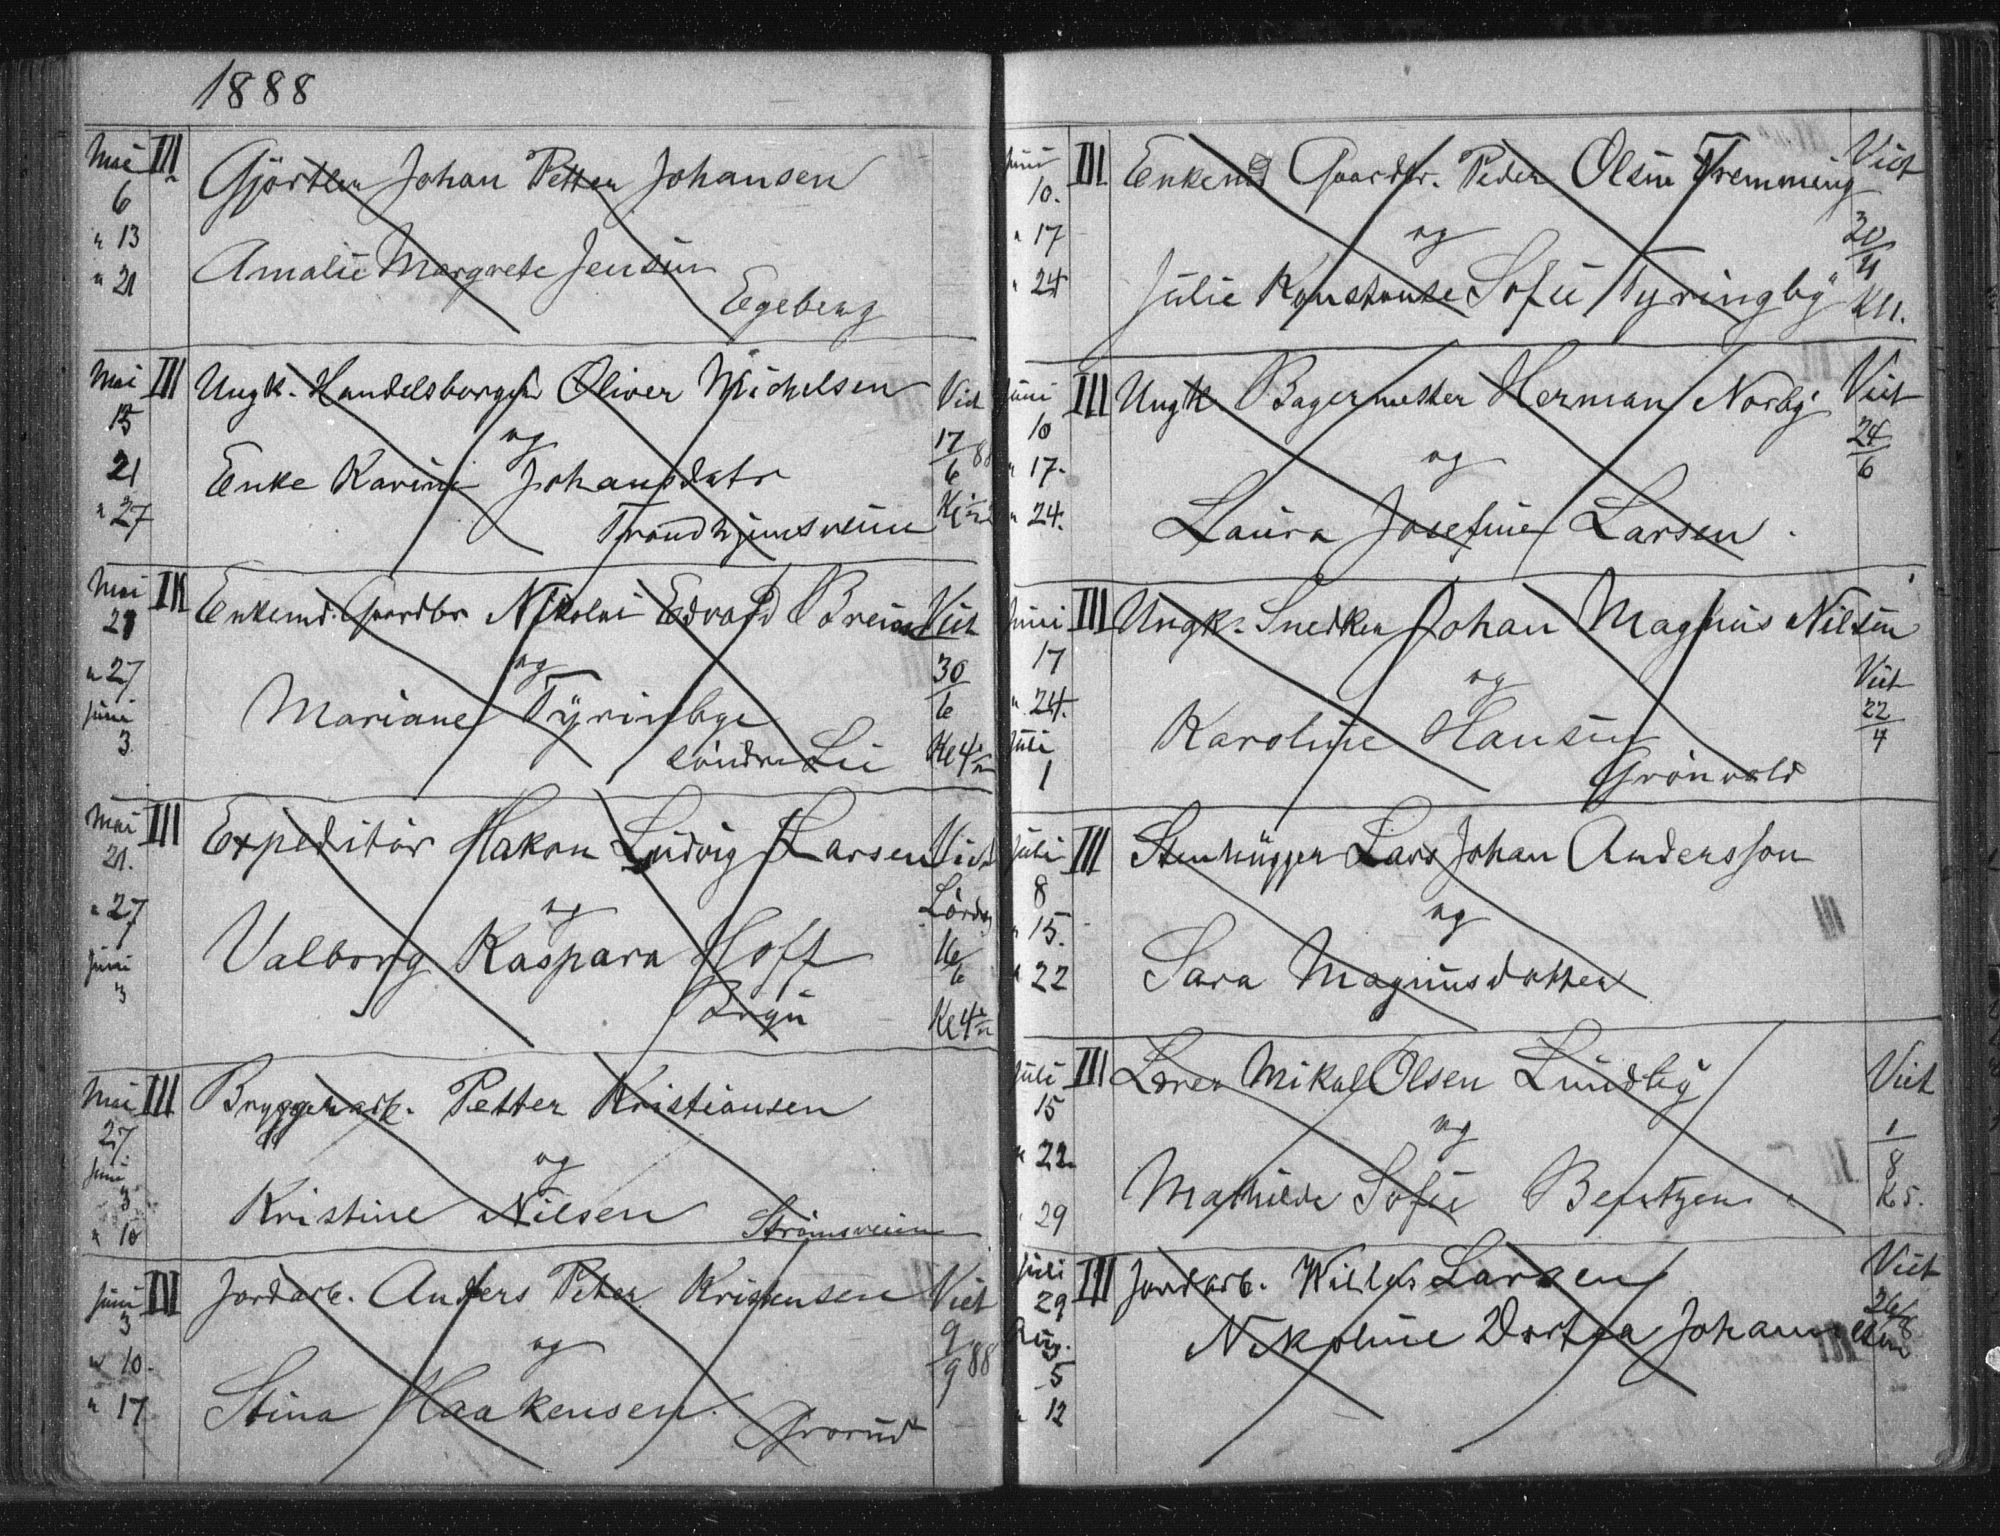 1888
Mai III Gjørtler Johan Petter Johansen
6
" 13
" 21 Amalie Margrete Jensen
Egeberg
Mai III Ungk. Handelsborger Oliver Michelsen Viet
15 og 17/6 88
21 Enke Karine Johansdatr
" 27 Trondhjemsveien
Mai III Enkemd. Gaardbr Nikolai Edvard Viet
28 og 30/6
" 27 Mariane Tyrinbye
Juni
3 Søndre Lii Kl 4
Mai III Expeditør Hakon Ludvig Larsen Viet
21. og Lørdag
" 27 Valborg Kaspara Hoff 16/6
Juni
3 Kl 4
Mai III Bryggerarb. Petter Kristiansen
27. og
Juni
3 Kristine Nilsen
" 10 Strømsveien
Juni III Jordarb. Anders Peter Kristensen Viet
3 og 9/9 88
" 10.
" 17 Stina Haakensen
Grorud
Juni III Enkemd Gaardbr. Peder Olsen Tremming Viet
10. og
" 17
" 24 Julie Konstanse Sofie Tyringby
Juni III Ungk. Bagermester Herman Norby Viet
10 og 24/6
" 17.
" 24. Laura Josefine Larsen.
Juni III Ungk. Snedker Johan Magnus Nilsen
17 og Viet
" 24. Karoline Hansen 22/4
Juli
1 Grønvold
Juli III Stenhugger Lars Johan Andersson
8 og
" 15.
" 22 Sara Magnusdatter
Juli III Loren Mikal Olsen Lundby Viet
15 og 1/8
" 22. Mathilde Sofie Bentzen K 5.
" 29
Juli III Jordarb. Larsen Viet
29 Nikoline Dortea Johannesen 26/8
Aug.
5
" 12